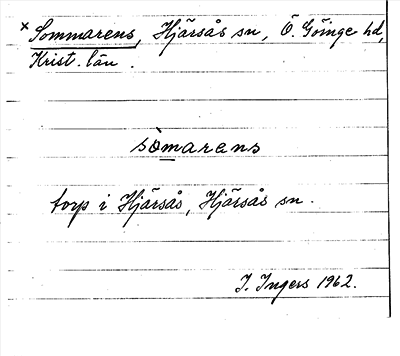 × Sommarens, Hjärsås sn, Ö. Göinge hd,
Krist. län.
sòmarens
torp i Hjärsås, Hjärsås sn.
I. Ingers 1962.